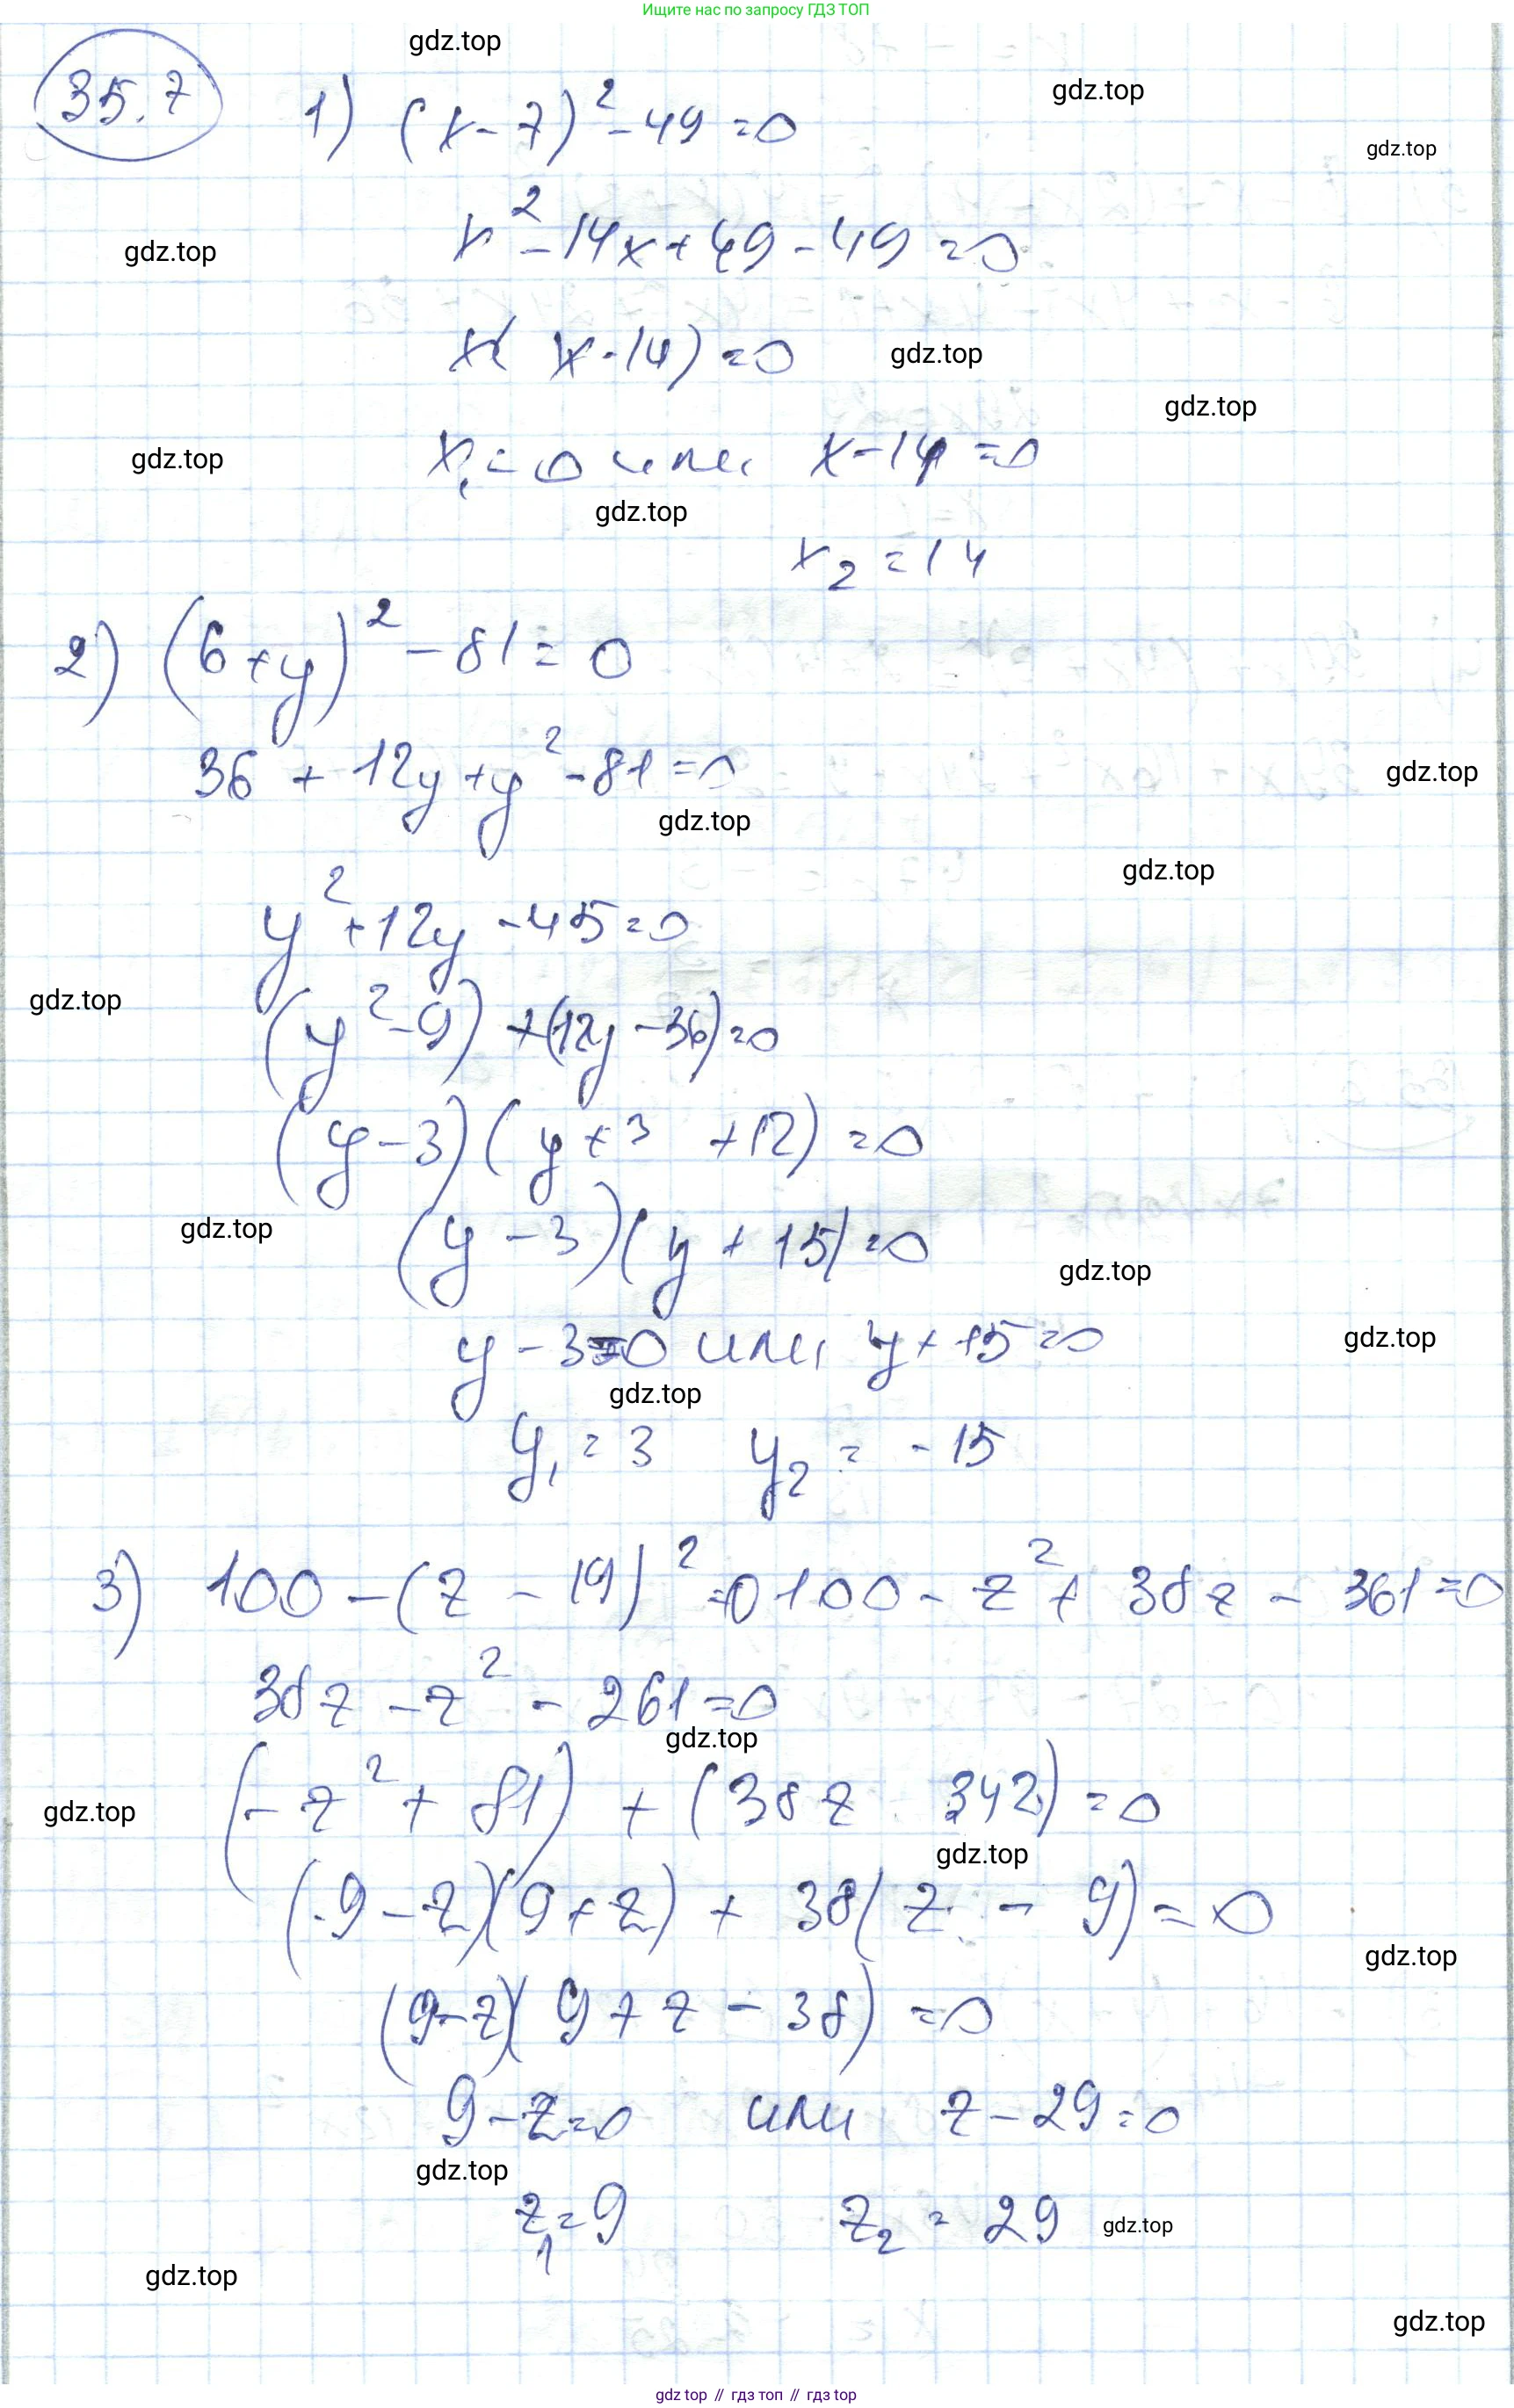 Ищите нас по запросу ГДЗ ТОП
gdz.top
35.7 1) (x-7)²-49=0
gdz.top
gdz.top
x²-14x+49-49=0
gdz.top
x(x-14)=0
gdz.top
gdz.top
x₁=0 или x-14=0
gdz.top
gdz.top
x₂=14
2) (6+y)²-81=0
36+12y+y²-81=0
gdz.top
gdz.top
gdz.top
y²+12y-45=0
gdz.top
(y²-9)+(12y-36)=0
(y-3)(y+3+12)=0
gdz.top
(y-3)(y+15)=0
gdz.top
y-3=0 или y+15=0
gdz.top
gdz.top
y₁=3 y₂=-15
3) 100-(z-19)²=0 100-z²+38z-361=0
38z-z²-261=0
gdz.top
(-z²+81)+(38z 342)=0
gdz.top
gdz.top
(9-z)(9+z)+38(z-9)=0
gdz.top
(9-z)(9+z-38)=0
9-z=0 или z-29=0
gdz.top
z₁=9 z₂=29
gdz.top
gdz.top
gdz.top
gdz top // гдз топ // гдз top